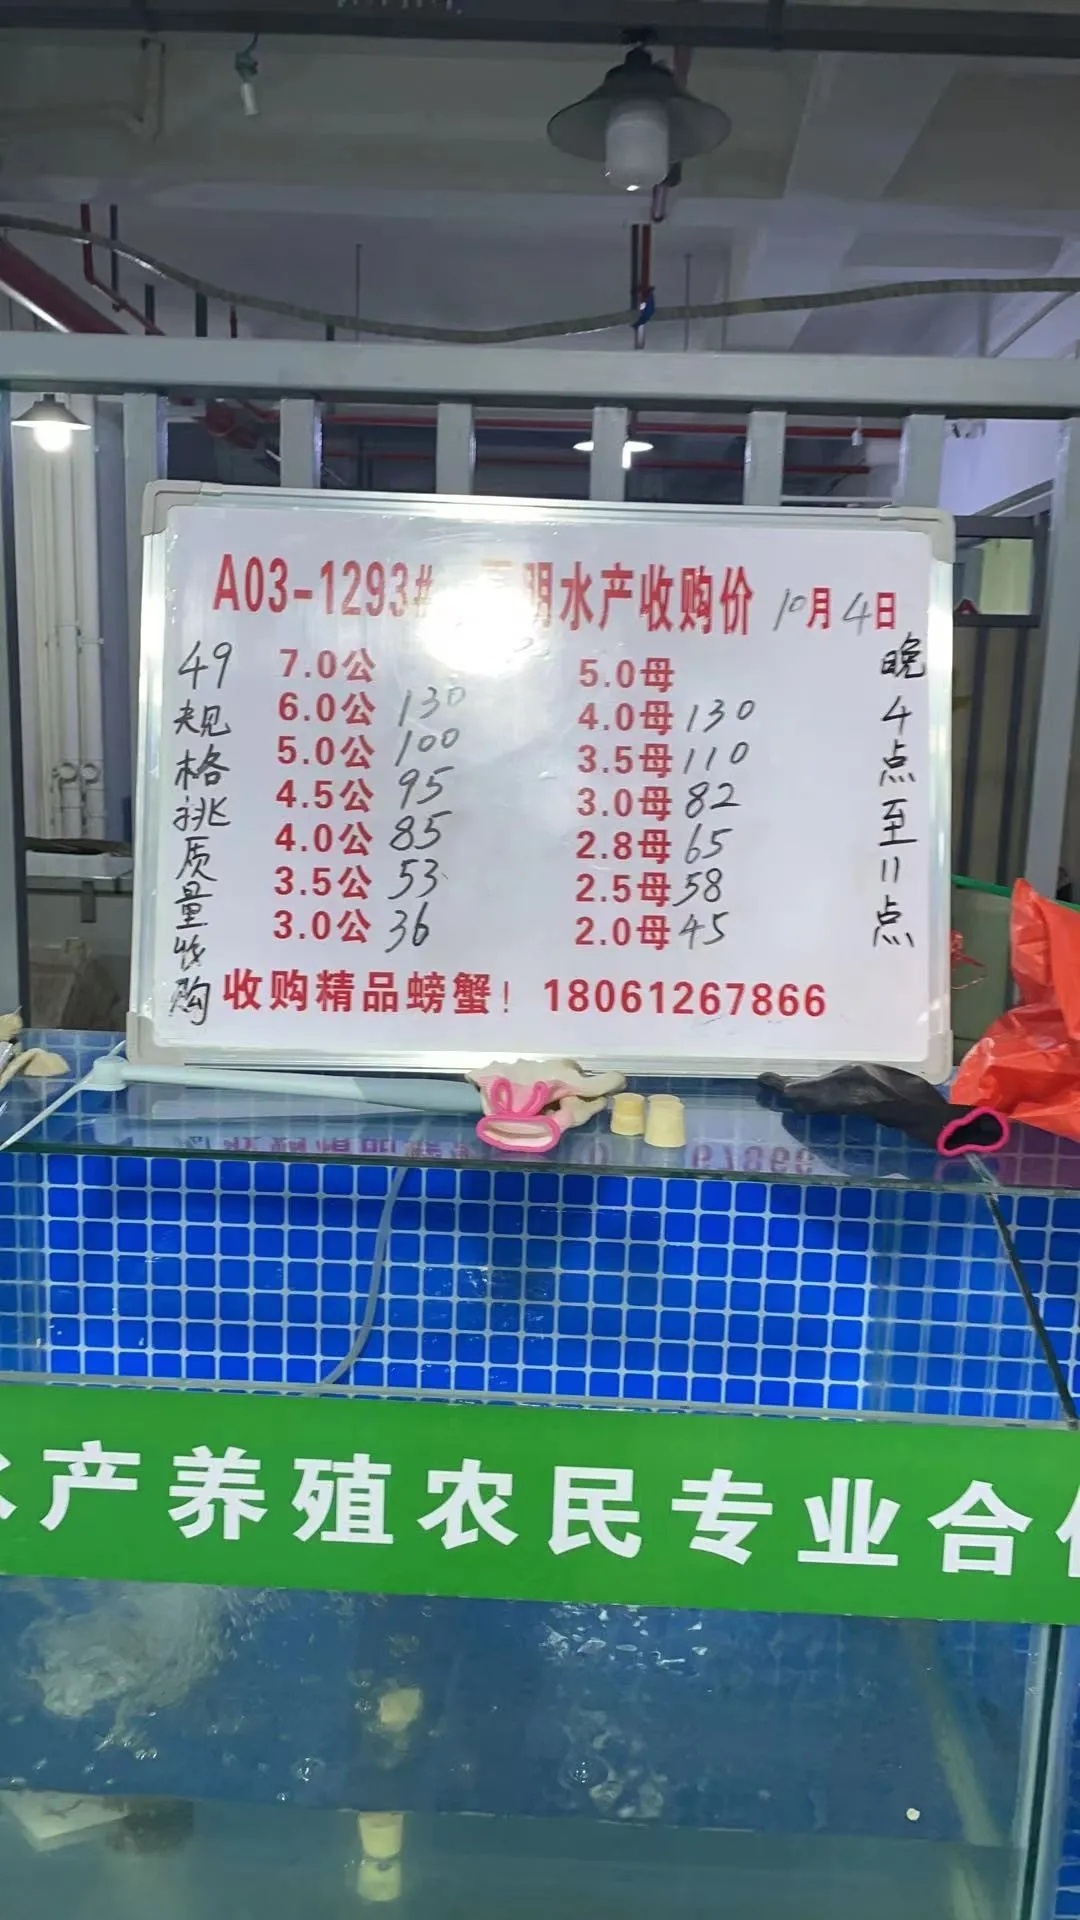 A03-1293# 明水产收购价 10月4日
49规格挑质量收购
7.0公
6.0公 130
5.0公 100
4.5公 95
4.0公 85
3.5公 53
3.0公 36
5.0母
4.0母 130
3.5母 110
3.0母 82
2.8母 65
2.5母 58
2.0母 45
晚4点至11点
收购精品螃蟹！ 18061267866
水产养殖农民专业合作